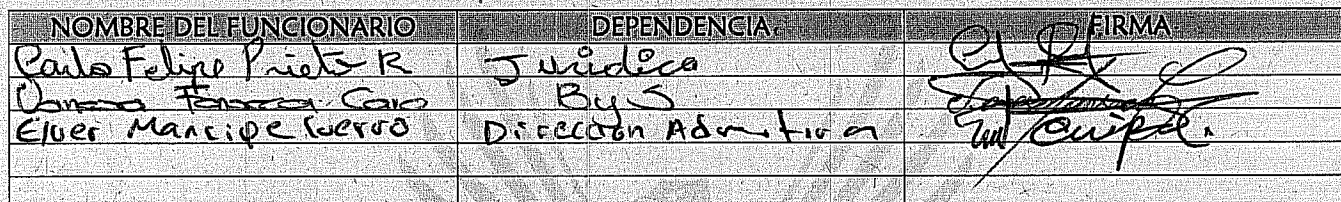 NOMBRE DEL FUNCIONARIO DEPENDENCIA FIRMA
Carlo Felipe Prieto R Juridica
Fonseca Caro By S
Elver Mancipe Cuervo Dirección Admitiva